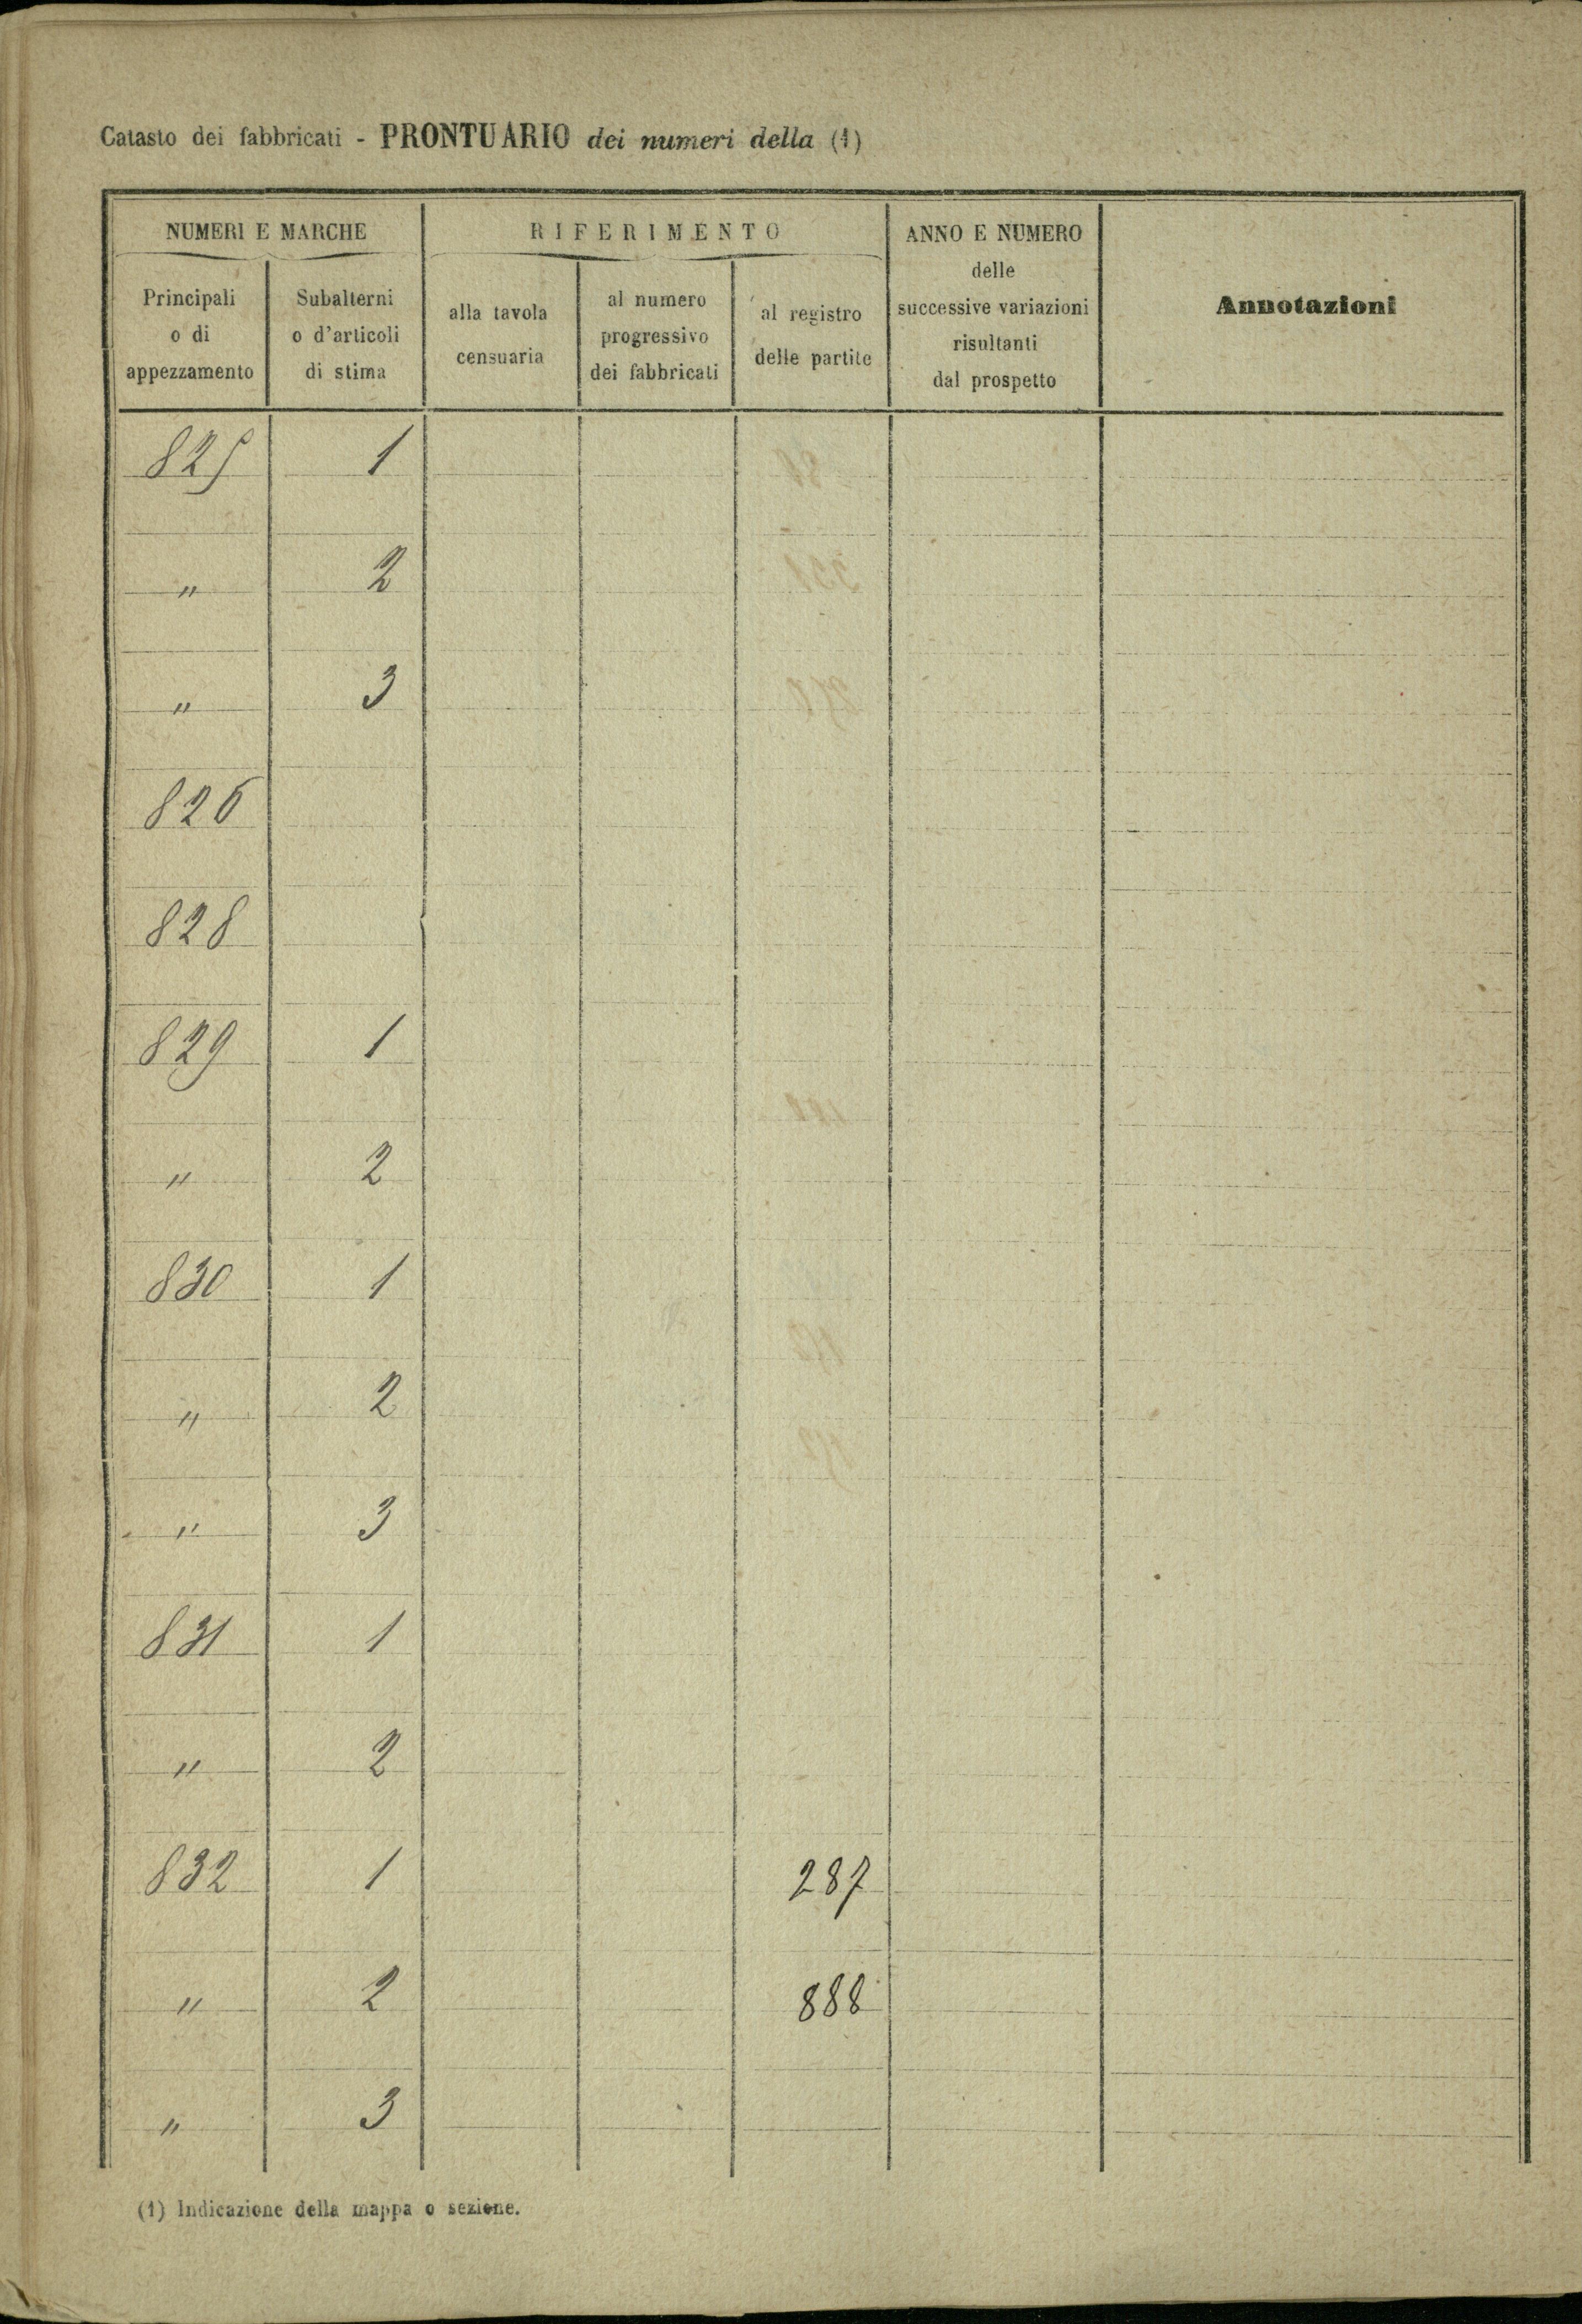 Catasto dei fabbricati - PRONTUARIO dei numeri della (1)
NUMERI E MARCHE
RIFERIMENTO
ANNO E NUMERO
delle
successive variazioni
risultanti
dal prospetto
Annotazioni
Principali
o di
appezzamento
Subalterni
o d'articoli
di stima
alla tavola
censuaria
al numero
progressivo
dei fabbricati
al registro
delle partite
825 1
" 2
" 3
826
828
829 1
" 2
830 1
" 2
" 3
831 1
" 2
832 1 287
" 2 888
" 3
(1) Indicazione della mappa o sezione.